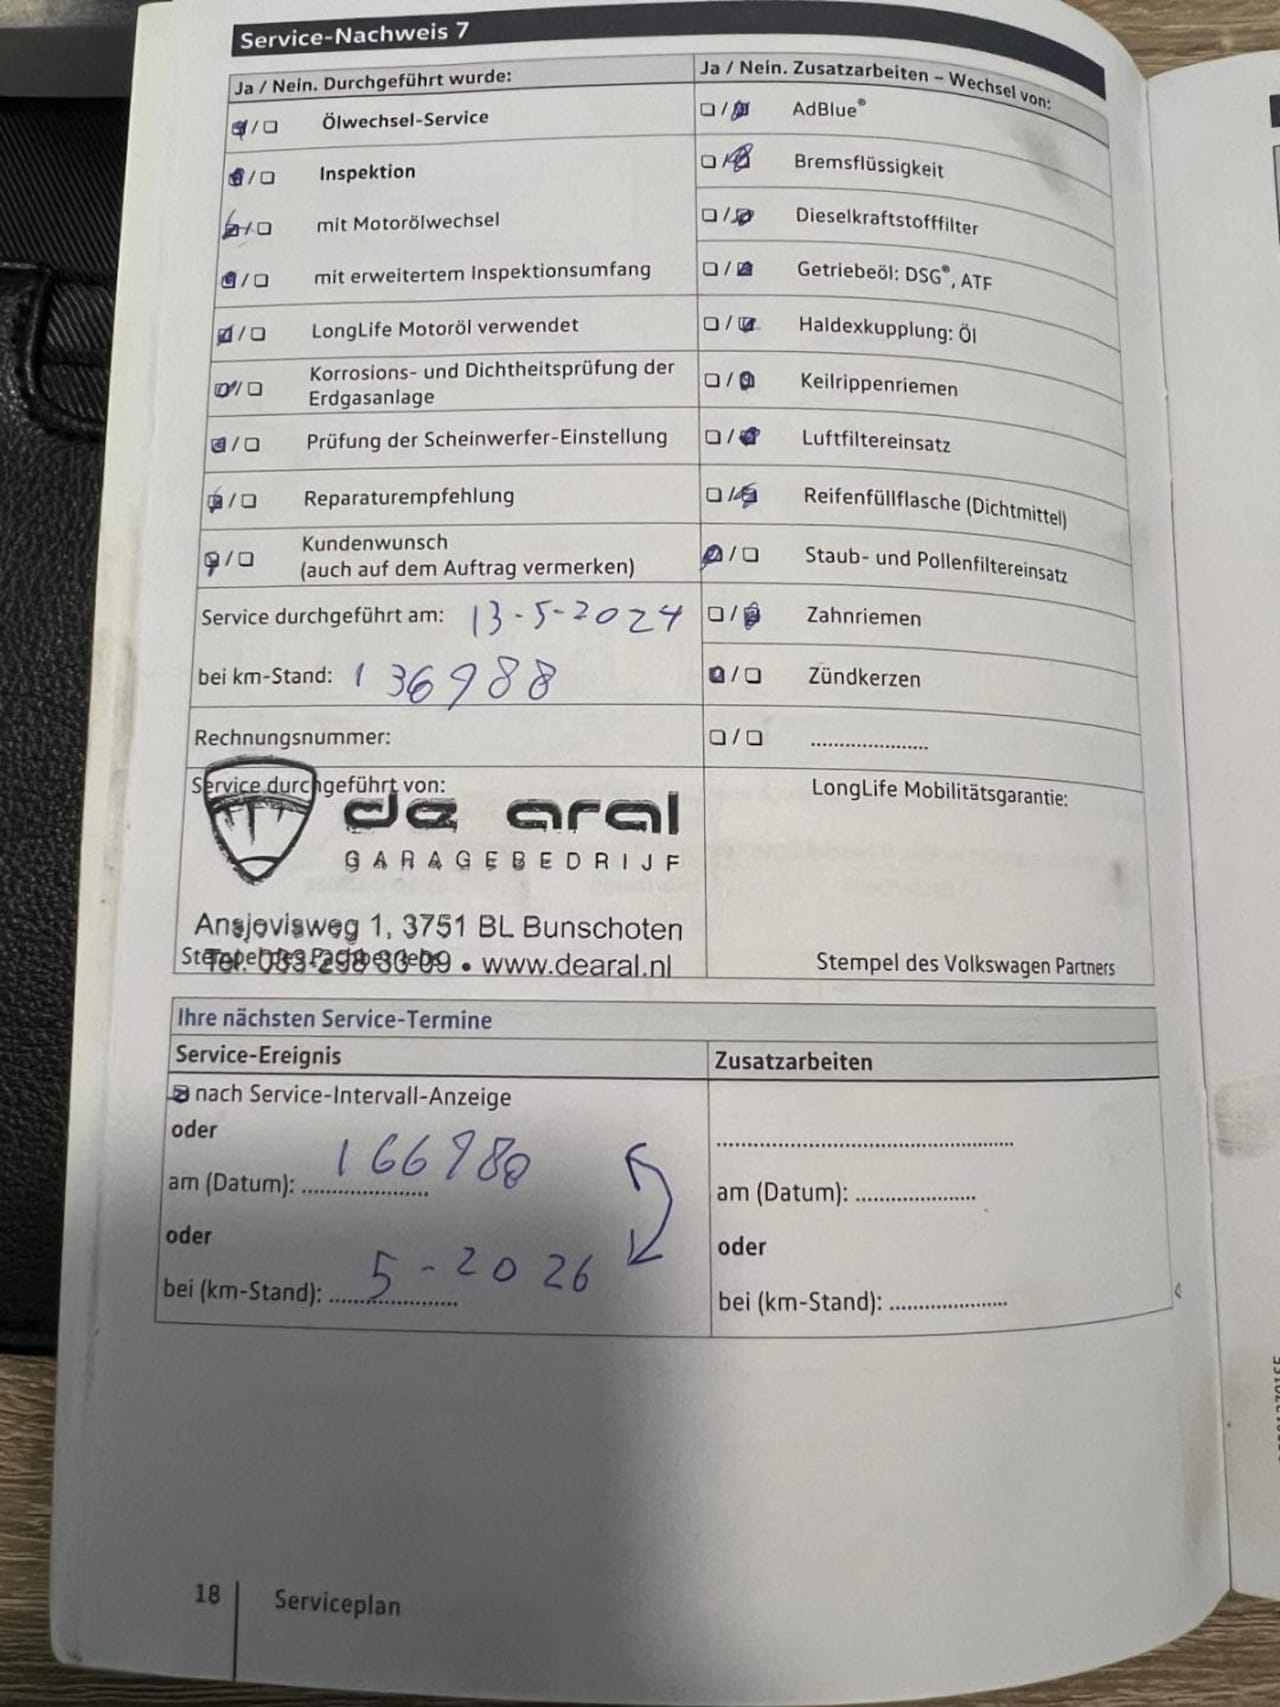 Service-Nachweis 7
Ja / Nein. Durchgeführt wurde:
Ölwechsel-Service
Inspektion
mit Motorölwechsel
mit erweitertem Inspektionsumfang
LongLife Motoröl verwendet
Korrosions- und Dichtheitsprüfung der
Erdgasanlage
Prüfung der Scheinwerfer-Einstellung
Reparaturempfehlung
Kundenwunsch
(auch auf dem Auftrag vermerken)
Service durchgeführt am: 13-5-2024
bei km-Stand: 136988
Rechnungsnummer:
Service durchgeführt von:
de aral
GARAGEBEDRIJF
Ansjovisweg 1, 3751 BL Bunschoten
Tel. 033-298 30 09 • www.dearal.nl
Ja / Nein. Zusatzarbeiten – Wechsel von:
AdBlue®
Bremsflüssigkeit
Dieselkraftstofffilter
Getriebeöl: DSG®, ATF
Haldexkupplung: Öl
Keilrippenriemen
Luftfiltereinsatz
Reifenfüllflasche (Dichtmittel)
Staub- und Pollenfiltereinsatz
Zahnriemen
Zündkerzen
......................
LongLife Mobilitätsgarantie:
Stempel des Volkswagen Partners
Ihre nächsten Service-Termine
Service-Ereignis
nach Service-Intervall-Anzeige
oder
am (Datum): 166980
oder
bei (km-Stand): 5-2026
Zusatzarbeiten
......................
am (Datum): ......................
oder
bei (km-Stand): ......................
18
Serviceplan